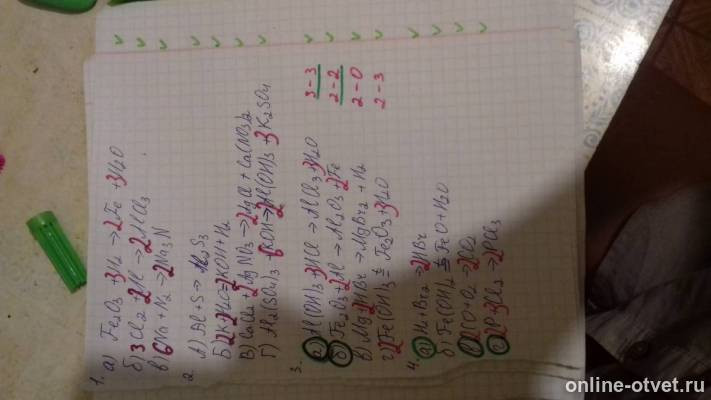 1. а) Fe2O3 + 3H2 → 2Fe + 3H2O
б) 3Cl2 + 2Al → 2AlCl3
в) 6Na + N2 → 2Na3N
2. А) Al + S → Al2S3
Б) 2K + 2H2O → 2KOH + H2
В) CaCl2 + 2AgNO3 → 2AgCl + Ca(NO3)2
Г) Al2(SO4)3 + 6KOH → 2Al(OH)3 + 3K2SO4
3. а) Al(OH)3 + 3HCl → AlCl3 + 3H2O
б) Fe2O3 + 2Al → Al2O3 + 2Fe
в) Mg + 2HBr → MgBr2 + H2
г) 2Fe(OH)3 t→ Fe2O3 + 3H2O
3 – 3
2 – 2
2 – 0
2 – 3
4. а) H2 + Br2 → 2HBr
б) Fe(OH)2 t→ FeO + H2O
2CO + O2 → 2CO2
2P + 3Cl2 → 2PCl3
online-otvet.ru